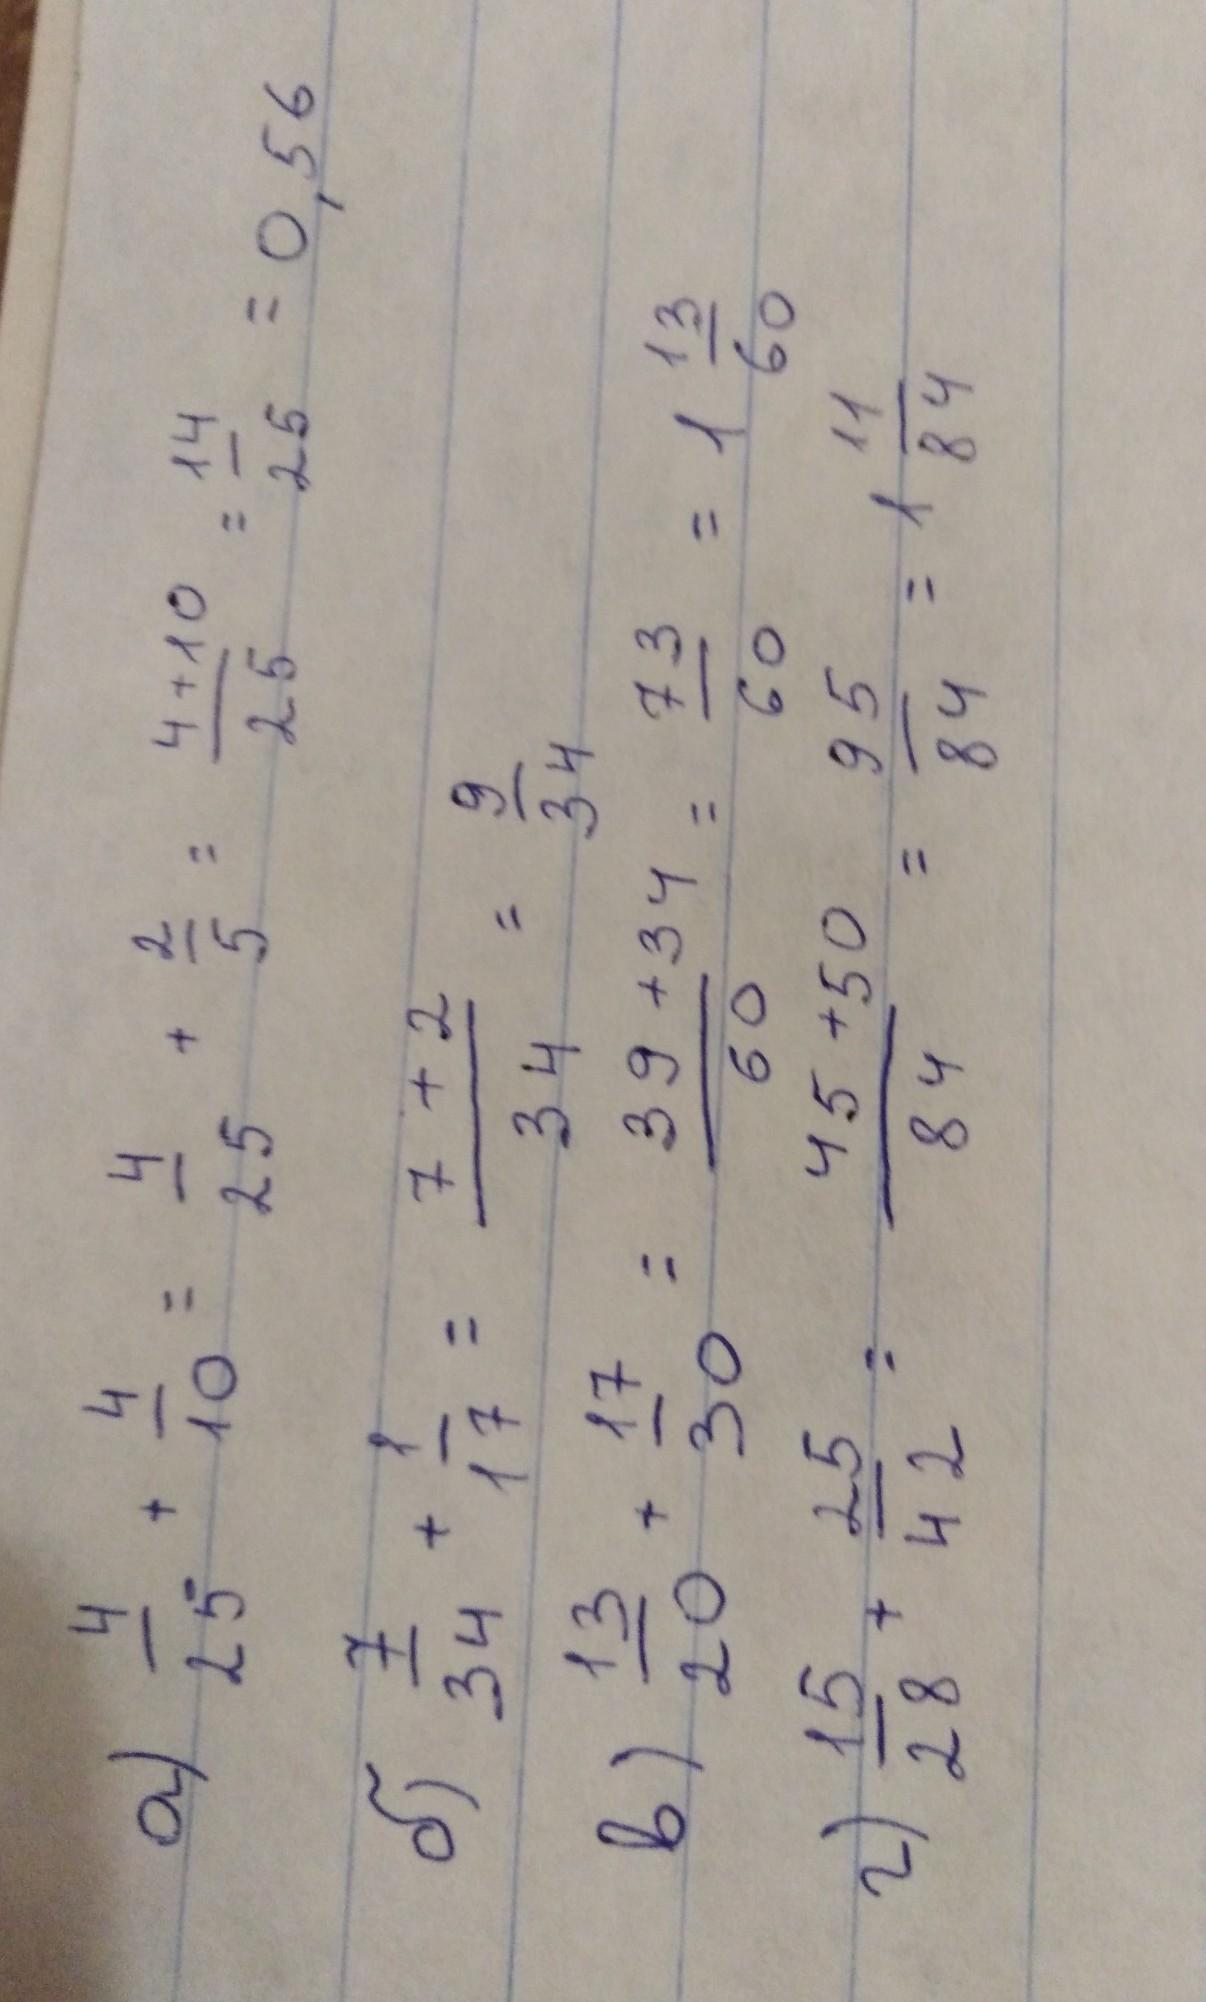 а) 4/25 + 4/10 = 4/25 + 2/5 = (4+10)/25 = 14/25 = 0,56
б) 7/34 + 1/17 = (7+2)/34 = 9/34
в) 13/20 + 17/30 = (39+34)/60 = 73/60 = 1 13/60
г) 15/28 + 25/42 = (45+50)/84 = 95/84 = 1 11/84